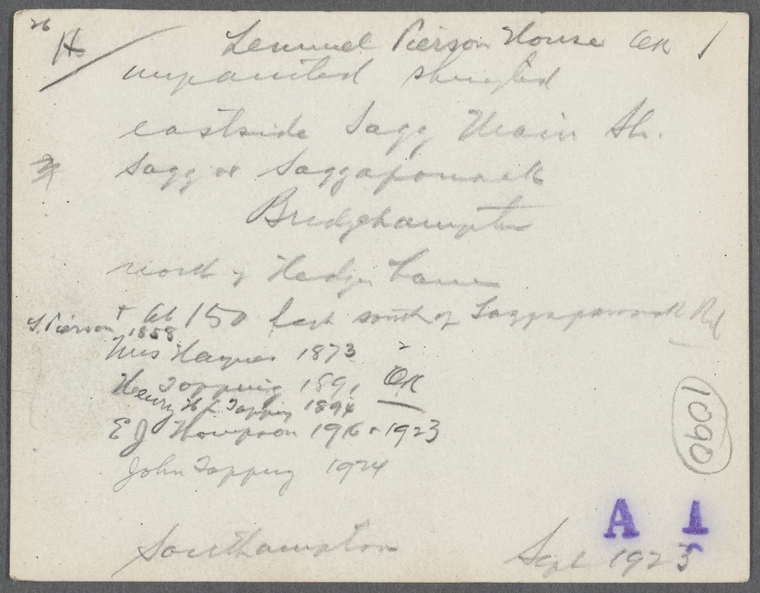 26
H Lemuel Pierson House OK /
unpainted shingled
eastside Sagg Main St.
Sagg or Saggaponack
Bridgehampton
north of Hedges Lane
+ ab 150 feet south of Saggaponack Rd
L. Pierson 1858
Mrs Haynes 1873
H Topping 189 OK
Henry H L Topping 1894
E J Thompson 1916 + 1923
John Topping 1924
1090
A 1
Southampton Sept 1923